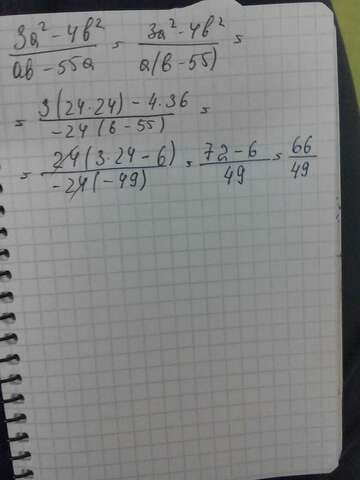 (3a² - 4b²)/(ab - 55a) = (3a² - 4b²)/(a(b - 55)) =
= (3(24·24) - 4·36)/(-24(6 - 55)) =
= (24(3·24 - 6))/(-24(-49)) = (72 - 6)/49 = 66/49